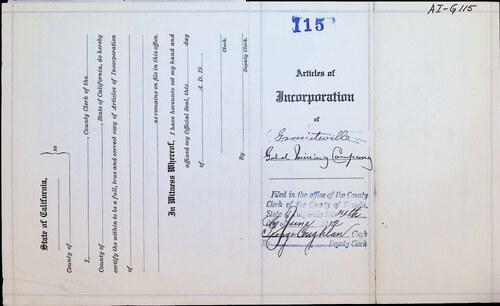 AI-G 115
115
Articles of
Incorporation
of
Graniteville
Gold Mining Company
Filed in the office of the County
Clerk of the County of Nevada,
State of Cal, this 14th
day June
George Coughlan Clerk
By Deputy Clerk
State of California,
County of ss
I, , County Clerk of the
County of , State of California, do hereby
certify the within to be a full, true and correct copy of Articles of Incorporation
of
as remains on file in this office.
In Witness Whereof, I have hereunto set my hand and
affixed my Official Seal, this day
of A. D. 19
Clerk.
By
Deputy Clerk.